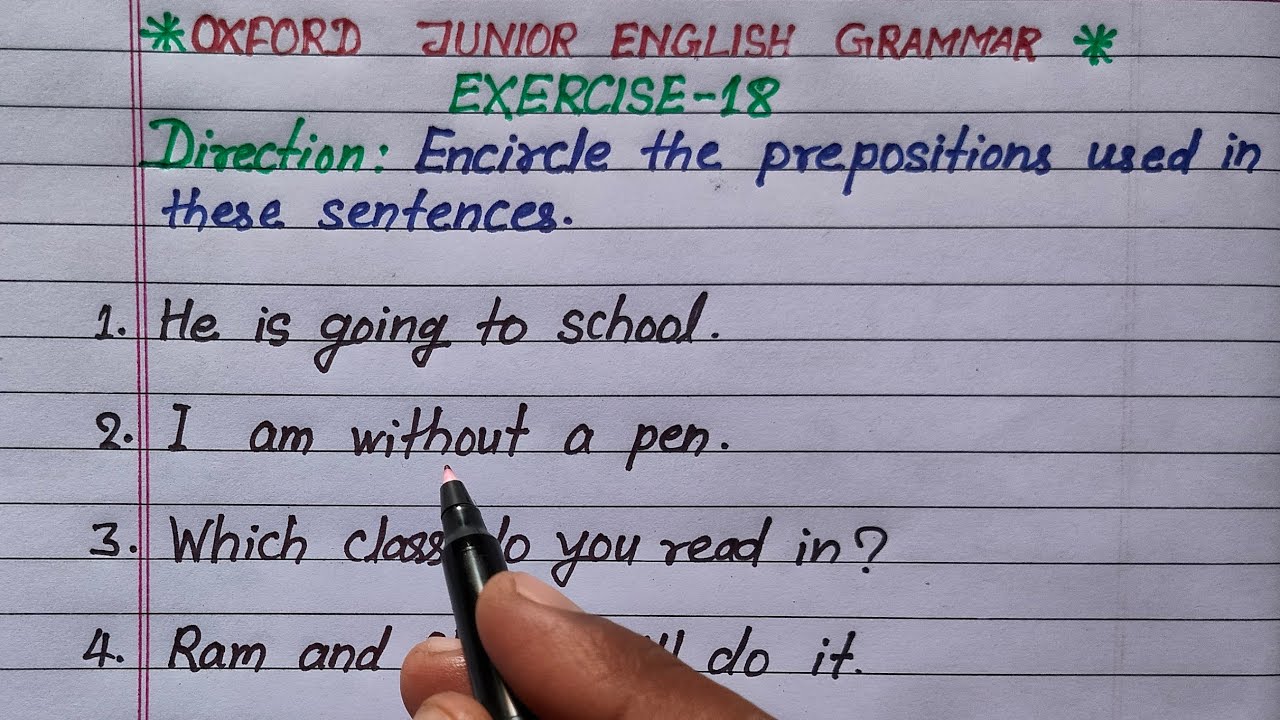 *OXFORD JUNIOR ENGLISH GRAMMAR*
EXERCISE-18
Direction: Encircle the prepositions used in
these sentences.
1. He is going to school.
2. I am without a pen.
3. Which class do you read in?
4. Ram and do it.